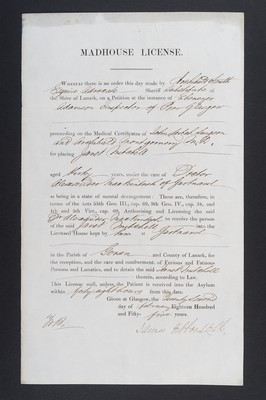 MADHOUSE LICENSE.
WHEREAS there is no order this day made by Archibald Smith
Esquire Advocate Sheriff Substitute of
the Shire of Lanark, on a Petition at the instance of Ebenezer
Adamson Inspector of Poor Glasgow
proceeding on the Medical Certificates of John Surgeon
and Archibald Montgomery M.D.
for placing Janet Mitchell
aged Sixty years, under the care of Doctor
Alexander Mackintosh of Gartnavel
as being in a state of mental derangement: These are, therefore, in
terms of the acts 55th Geo. III., cap. 69, 9th Geo. IV., cap. 34, and
4th and 5th Vict., cap. 60, Authorising and Licensing the said
Dr Alexander Mackintosh to receive the person
of the said Janet Mitchell into the
Licensed House kept by him at Gartnavel
in the Parish of Govan and County of Lanark, for
the reception, and the care and confinement, of Furious and Fatuous
Persons and Lunatics, and to detain the said Janet Mitchell
therein, according to Law.
This License null, unless the Patient is received into the Asylum
within forty eight hours from this date.
Given at Glasgow, the twenty second
day of February Eighteen Hundred
and Fifty- five years.